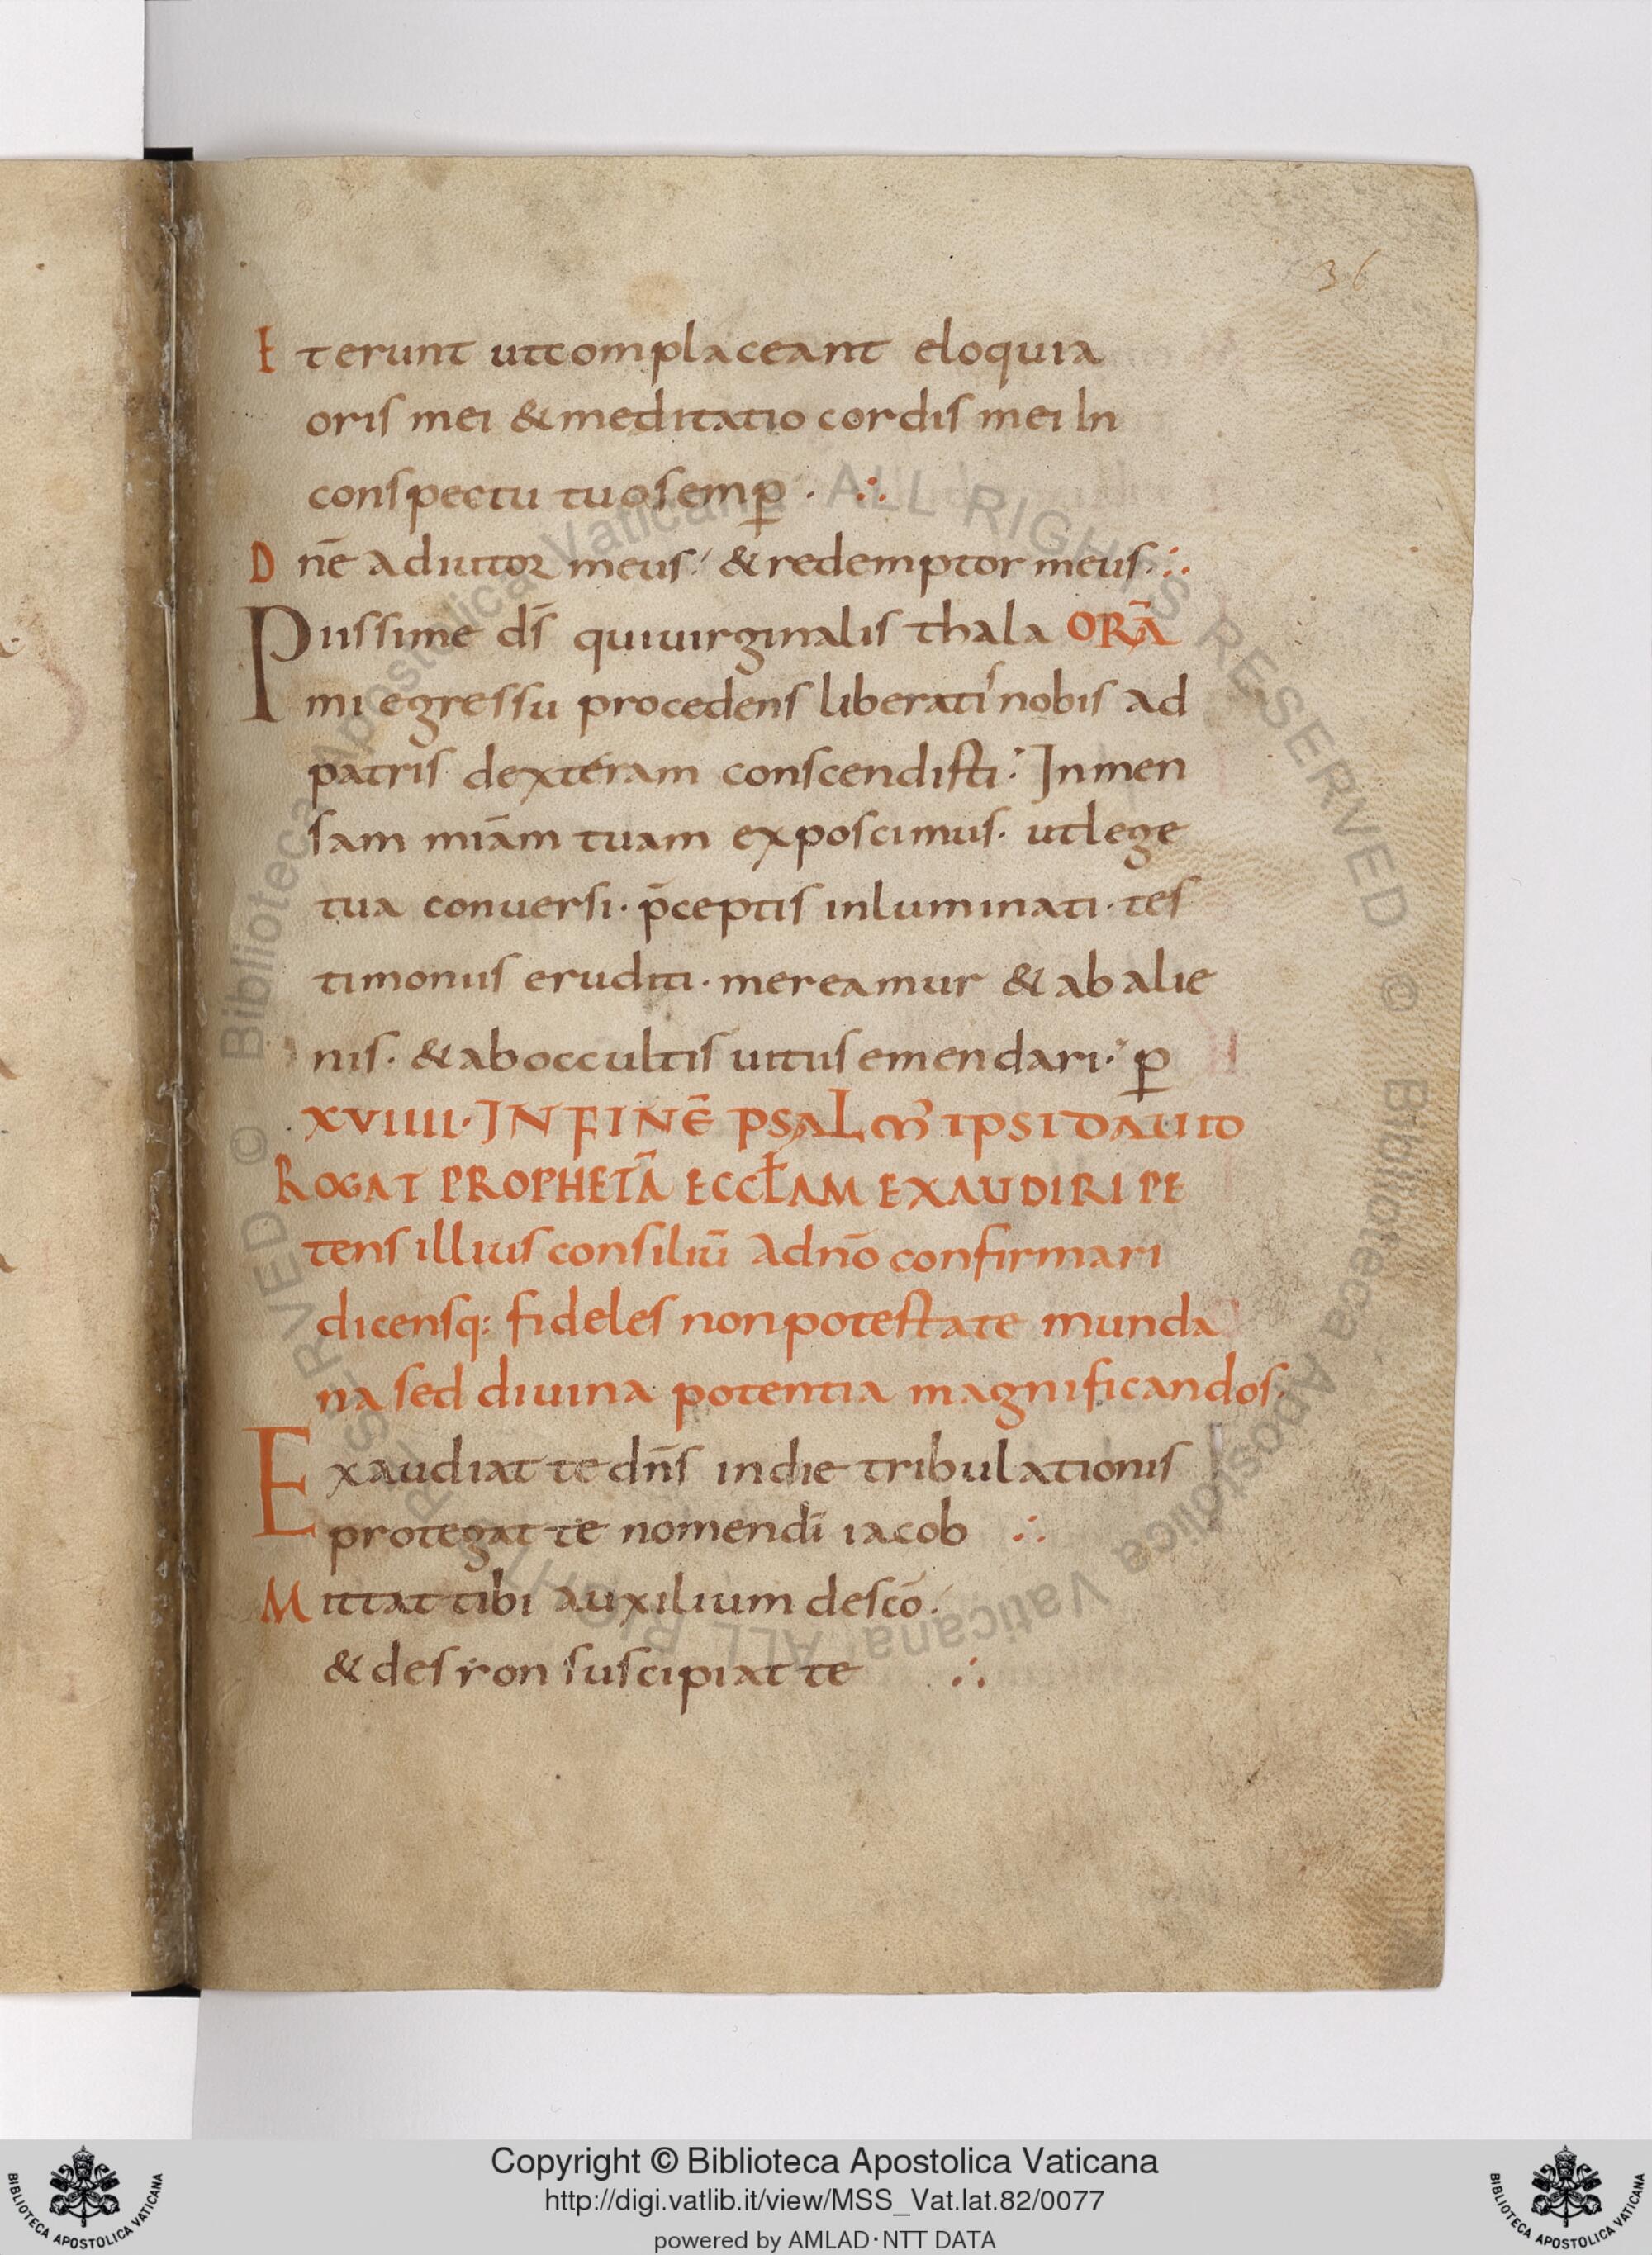 36
Et erunt utcomplaceant eloquia
oris mei & meditatio cordis mei In
conspectu tuo semp̄ · ∴
Dnē adiutor meus ·' & redemptor meus · ∴
Piissime d̄s qui uirginalis thala ORĀ
mi egressu procedens liberatis nobis ad
patris dexteram conscendisti ·' Inmen
sam miām tuam exposcimus · ut lege
tua conuersi · p̄ceptis inluminati · tes
timoniis eruditi · mereamur & ab alie
nis · & ab occultis uitiis emendari ·' p̱
XVIIII · IN FINĒ PSALM' IPSI DAUID
ROGAT PROPHETĀ ECCƚAM EXAUDIRI PE
tens illius consiliū adnō confirmari
dicensq: fideles non potestate munda
na sed diuina potentia magnificandos ·
Exaudiat te dn̄s in die tribulationis
protegat te nomen dī iacob ∴
Mittat tibi auxilium de scō ·
& de sion suscipiat te ∴
© Biblioteca Apostolica Vaticana ALL RIGHTS RESERVED © Biblioteca Apostolica Vaticana ALL RIGHTS RESERVED
Copyright © Biblioteca Apostolica Vaticana
http://digi.vatlib.it/view/MSS_Vat.lat.82/0077
powered by AMLAD·NTT DATA
BIBLIOTECA APOSTOLICA VATICANA
BIBLIOTECA APOSTOLICA VATICANA